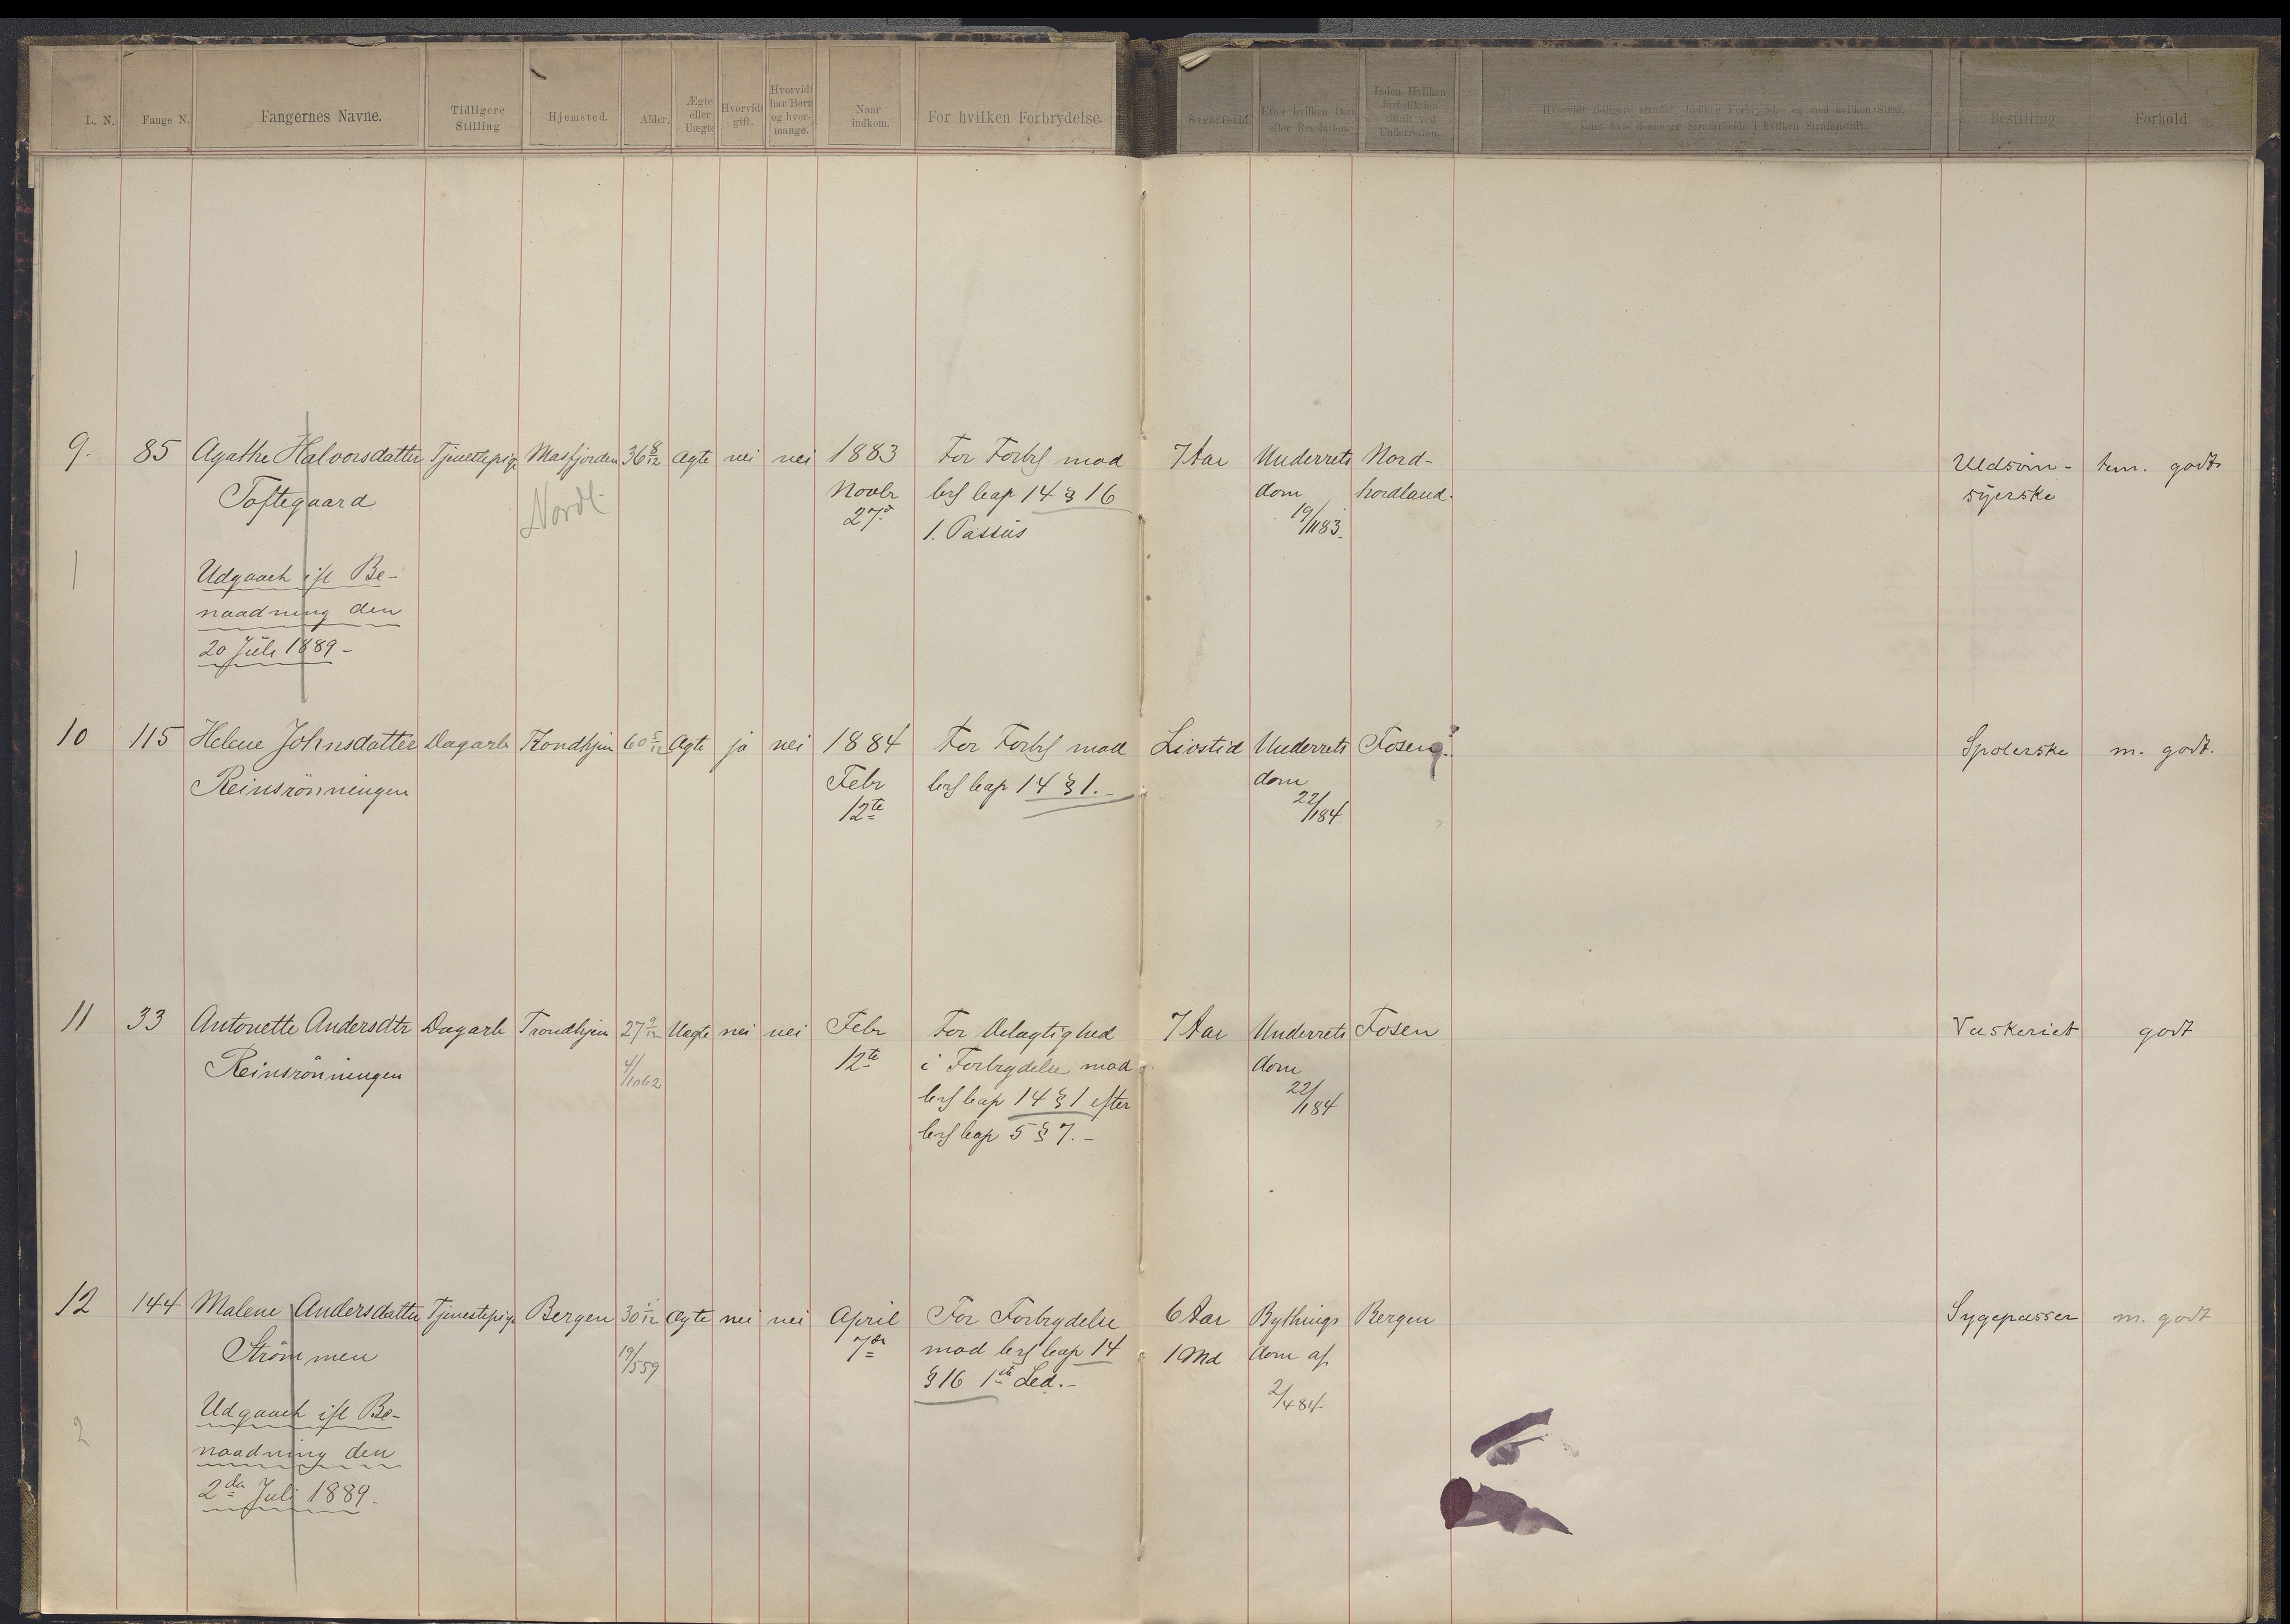 L. N.
Fange N.
Fangernes Navne.
Tidligere
Stilling
Hjemsted.
Alder.
Ægte
eller
Uægte
Hvorvidt
gift.
Hvorvidt
har Børn
og hvor-
mange.
Naar
indkom.
For hvilken Forbrydelse.
Straffetid.
Efter hvilken Dom
eller Resolution.
Inden Hvilken
Jurisdiktion
tiltalt ved
Underretten.
Hvorvidt tidligere straffet, hvilken Forbrydelse og med hvilken Straf,
samt hvis denne er Strafarbeide i hvilken Strafanstalt.
Bestilling
Forhold
9. 85 Agathe Halvorsdatter Tjenestepige Masfjorden 36 8/12 Ægte nei nei 1883 For Forbr mod 7 Aar Underrets Nord- Uldsöm- tem. godt
Toftegaard Nordl. Novbr Crl Cap 14 § 16 dom hordland. syerske
27de 1. Passus 19/11 83.
1
Udgaaet ifl Be-
naadning den
20 Juli 1889-
10 115 Helene Johnsdatter Dagarb Trondhjem 60 5/12 Ægte ja nei 1884 For Forbr mod Livstid Underrets Fosen Spolerske m. godt.
Reinsrönningen Febr Crl Cap 14 § 1.- dom
12te 22/1 84
11 33 Antonette Andersdtr Dagarb Trondhjem 27 9/12 Uægte nei nei Febr For Delagtighed 7 Aar Underrets Fosen Vaskeriet godt
Reinsrönningen 4/10 62 12te i Forbrydelse mod dom
Crl Cap 14 § 1 efter 22/1 84
Crl Cap 5 § 7.-
12 144 Malene Andersdatter Tjenestepige Bergen 30 /12 Ægte nei nei April For Forbrydelse 6 Aar Bythings Bergen Sygepasser m. godt
Strömmen 19/5 59 7de mod Crl Cap 14 1 Md dom af
§ 16 1ste Led.- 2/4 84
2
Udgaaet ifl Be-
naadning den
2den Juli 1889.